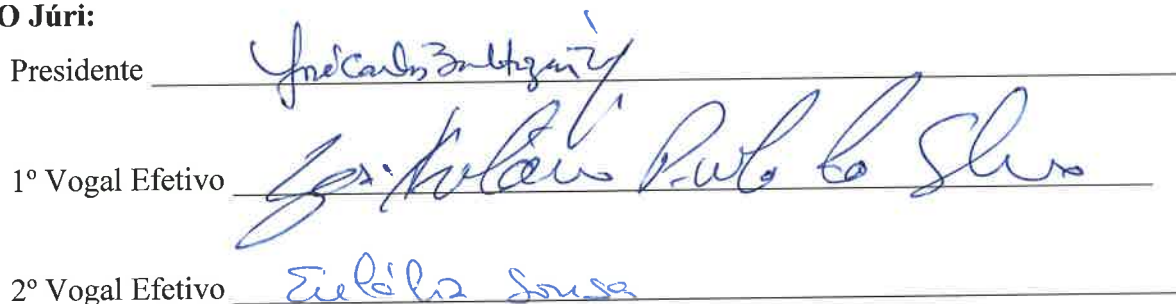 O Júri:
Presidente José Carlos
1º Vogal Efetivo da Silva
2º Vogal Efetivo Eulália Sousa